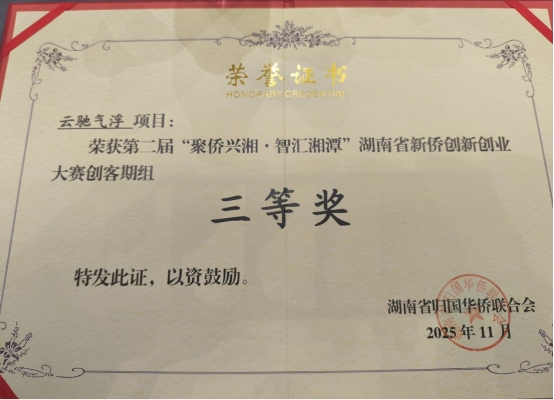 荣誉证书
HONORARY CREDENTIAL
云驰气浮 项目：
荣获第二届“聚侨兴湘·智汇湘潭”湖南省新侨创新创业
大赛创客期组
三等奖
特发此证，以资鼓励。
湖南省归国华侨联合会
2025年11月